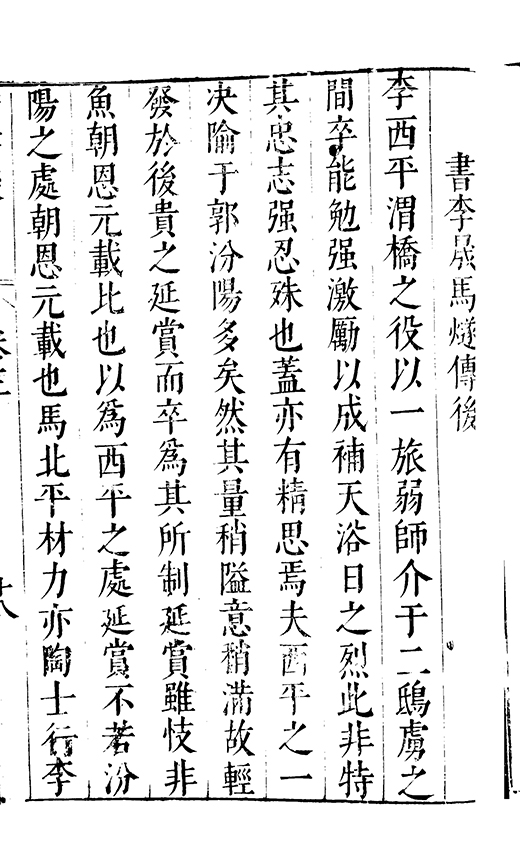 書李晟馬燧傳後
李西平渭橋之役以一旅弱師介于二鴟虜之
間卒能勉强激勵以成補天浴日之烈此非特
其忠志强忍殊也蓋亦有精思焉夫西平之一
决隃于郭汾陽多矣然其量稍隘意稍滿故輕
發於後貴之延賞而卒爲其所制延賞雖忮非
魚朝恩元載比也以爲西平之處延賞不若汾
陽之處朝恩元載也馬北平材力亦陶士行李
卷之三
十八